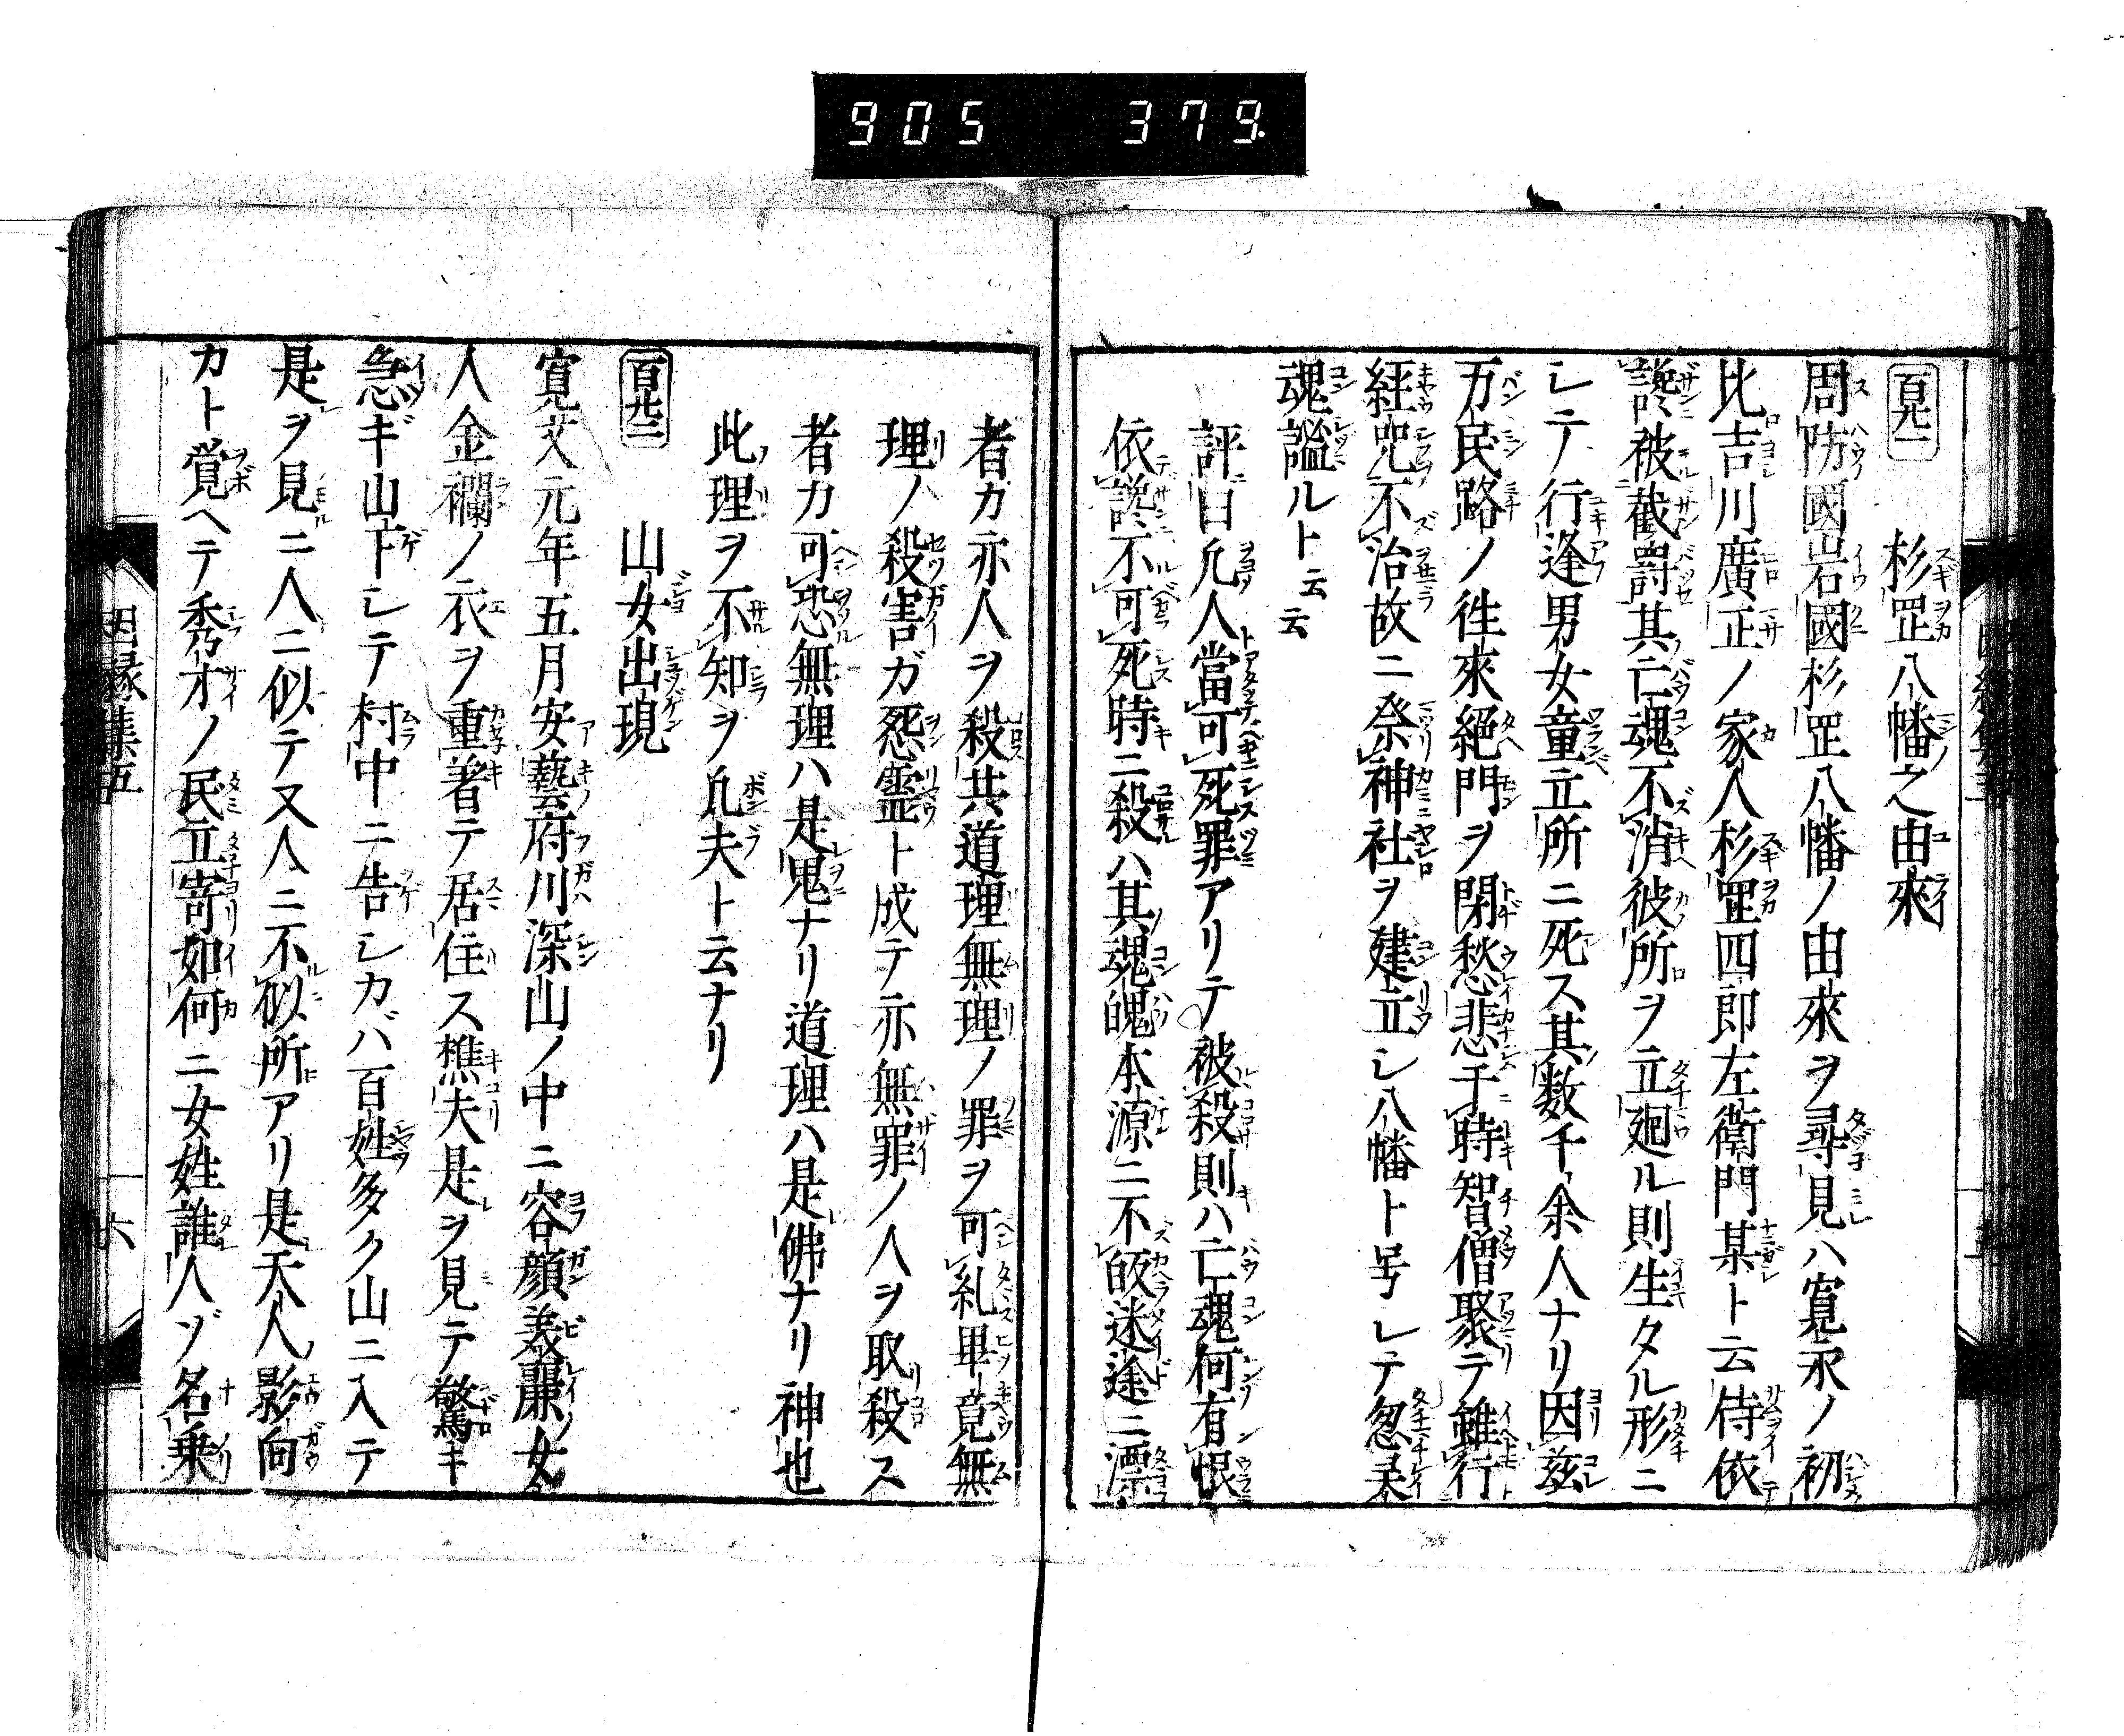 905 379.
百九一
杉罡八幡之由來
周防國岩國杉罡八幡ノ由來ヲ尋見ハ寛永ノ初
比吉川廣正ノ家人杉罡四郎左衛門某ト云侍依
讒被截罸其亡魂不消彼所ヲ立廻ル則生タル形ニ
シテ行逢男女童立所ニ死ス其数千余人ナリ因茲
万民路ノ徃來絕門ヲ閉愁悲于時智僧聚テ雖行
経呪不治故ニ祭神社ヲ建立シ八幡ト号シテ忽
魂謐ルト云云
評曰凢人當可死罪アリテ被殺則ハ亡魂何有恨
依讒不可死時ニ殺ハ其魂魄本源ニ不皈迷途ニ漂
者カ亦人ヲ殺共道理無理ノ罪ヲ可糺畢竟無
理ノ殺害ガ怨霊ト成テ亦無罪ノ人ヲ取殺ス
者カ可恐無理ハ是鬼ナリ道理ハ是佛ナリ神也
此理ヲ不知ヲ凢夫ト云ナリ
山女出現
寛文元年五月安藝府川深山ノ中ニ容顔美麗女
人金襴ノ衣ヲ重著テ居住ス樵夫是ヲ見テ驚キ
急ギ山下シテ村中ニ告シカバ百姓多ク山ニ入テ
是ヲ見ニ人ニ似テ又人ニ不似所アリ是天人影向
カト覚ヘテ秀才ノ民立寄如何ニ女姓誰人ゾ名乗
因縁集五
六